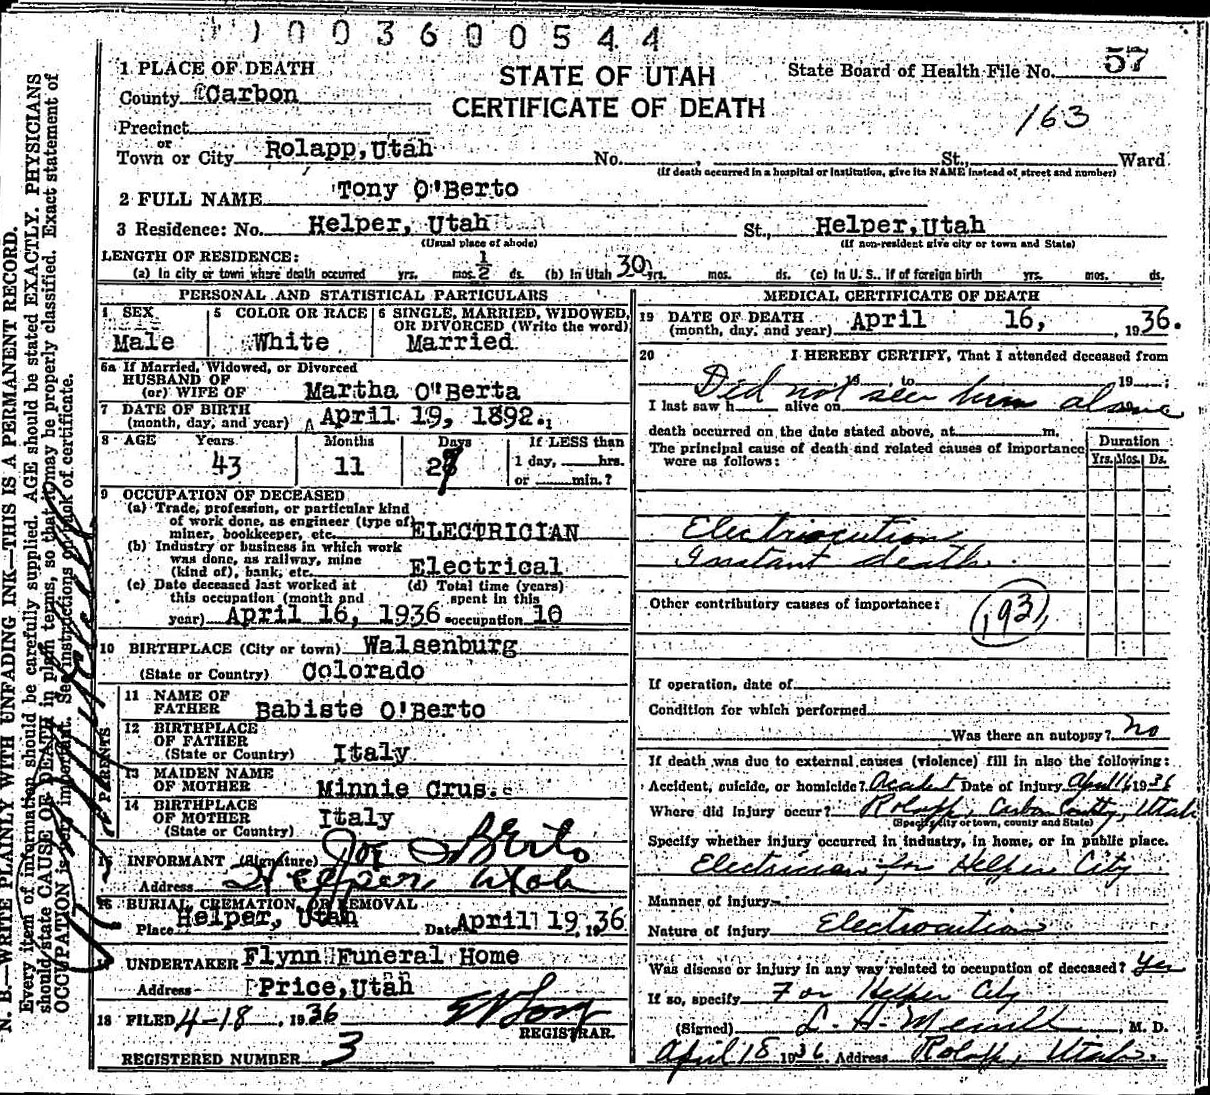 1003600544
1 PLACE OF DEATH
STATE OF UTAH
CERTIFICATE OF DEATH
State Board of Health File No. 57
163
County Carbon
Precinct
or
Town or City Rolapp, Utah No. , St., Ward
(If death occurred in a hospital or institution, give its NAME instead of street and number)
2 FULL NAME Tony O'Berto
3 Residence: No. Helper, Utah St., Helper, Utah
(Usual place of abode) (If non-resident give city or town and State)
LENGTH OF RESIDENCE:
(a) In city or town where death occurred yrs. mos. 1/2 ds. (b) In Utah 30 yrs. mos. ds. (c) In U. S., if of foreign birth yrs. mos. ds.
PERSONAL AND STATISTICAL PARTICULARS
4 SEX
Male
5 COLOR OR RACE
White
6 SINGLE, MARRIED, WIDOWED,
OR DIVORCED (Write the word)
Married
6a If Married, Widowed, or Divorced
HUSBAND OF
(or) WIFE OF Martha O"Berta
7 DATE OF BIRTH
(month, day, and year) April 19, 1892.
8 AGE Years Months Days If LESS than
43 11 27 1 day, hrs.
or min.?
9 OCCUPATION OF DECEASED
(a) Trade, profession, or particular kind
of work done, as engineer (type of)
miner, bookkeeper, etc. ELECTRICIAN
(b) Industry or business in which work
was done, as railway, mine
(kind of), bank, etc. Electrical
(c) Date deceased last worked at
this occupation (month and
year) April 16, 1936
(d) Total time (years)
spent in this
occupation 10
10 BIRTHPLACE (City or town) Walsenburg
(State or Country) Colorado
PARENTS
11 NAME OF
FATHER Babiste O'Berto
12 BIRTHPLACE
OF FATHER
(State or Country) Italy
13 MAIDEN NAME
OF MOTHER Minnie Crus.
14 BIRTHPLACE
OF MOTHER
(State or Country) Italy
INFORMANT (Signature) Joe O'Berto
Address Helper Utah
BURIAL, CREMATION, OR REMOVAL
Place Helper, Utah Date April 19, 1936
UNDERTAKER Flynn Funeral Home
Address Price, Utah
18 FILED 4-18, 1936
REGISTRAR.
REGISTERED NUMBER 3
MEDICAL CERTIFICATE OF DEATH
19 DATE OF DEATH
(month, day, and year) April 16, , 1936.
20 I HEREBY CERTIFY, That I attended deceased from
, to 19 ;
Did not see him alive
I last saw h alive on
death occurred on the date stated above, at m.
The principal cause of death and related causes of importance
were as follows:
Duration
Yrs. Mos. Ds.
Electriocution
Instant death
Other contributory causes of importance:
193
If operation, date of
Condition for which performed
Was there an autopsy? no
If death was due to external causes (violence) fill in also the following:
Accident, suicide, or homicide? Accident Date of injury April 16 1936
Where did injury occur? Rolapp, Carbon County, Utah
(Specify city or town, county and State)
Specify whether injury occurred in industry, in home, or in public place.
Electrician for Helper City
Manner of injury
Nature of injury Electrocution
Was disease or injury in any way related to occupation of deceased? Yes
If so, specify For Helper City
(Signed) L. H. Merrill , M. D.
April 18 1936 Address Rolapp, Utah.
N. B.—WRITE PLAINLY WITH UNFADING INK—THIS IS A PERMANENT RECORD.
Every item of information should be carefully supplied. AGE should be stated EXACTLY. PHYSICIANS
should state CAUSE OF DEATH in plain terms, so that it may be properly classified. Exact statement of
OCCUPATION is very important. See instructions on back of certificate.